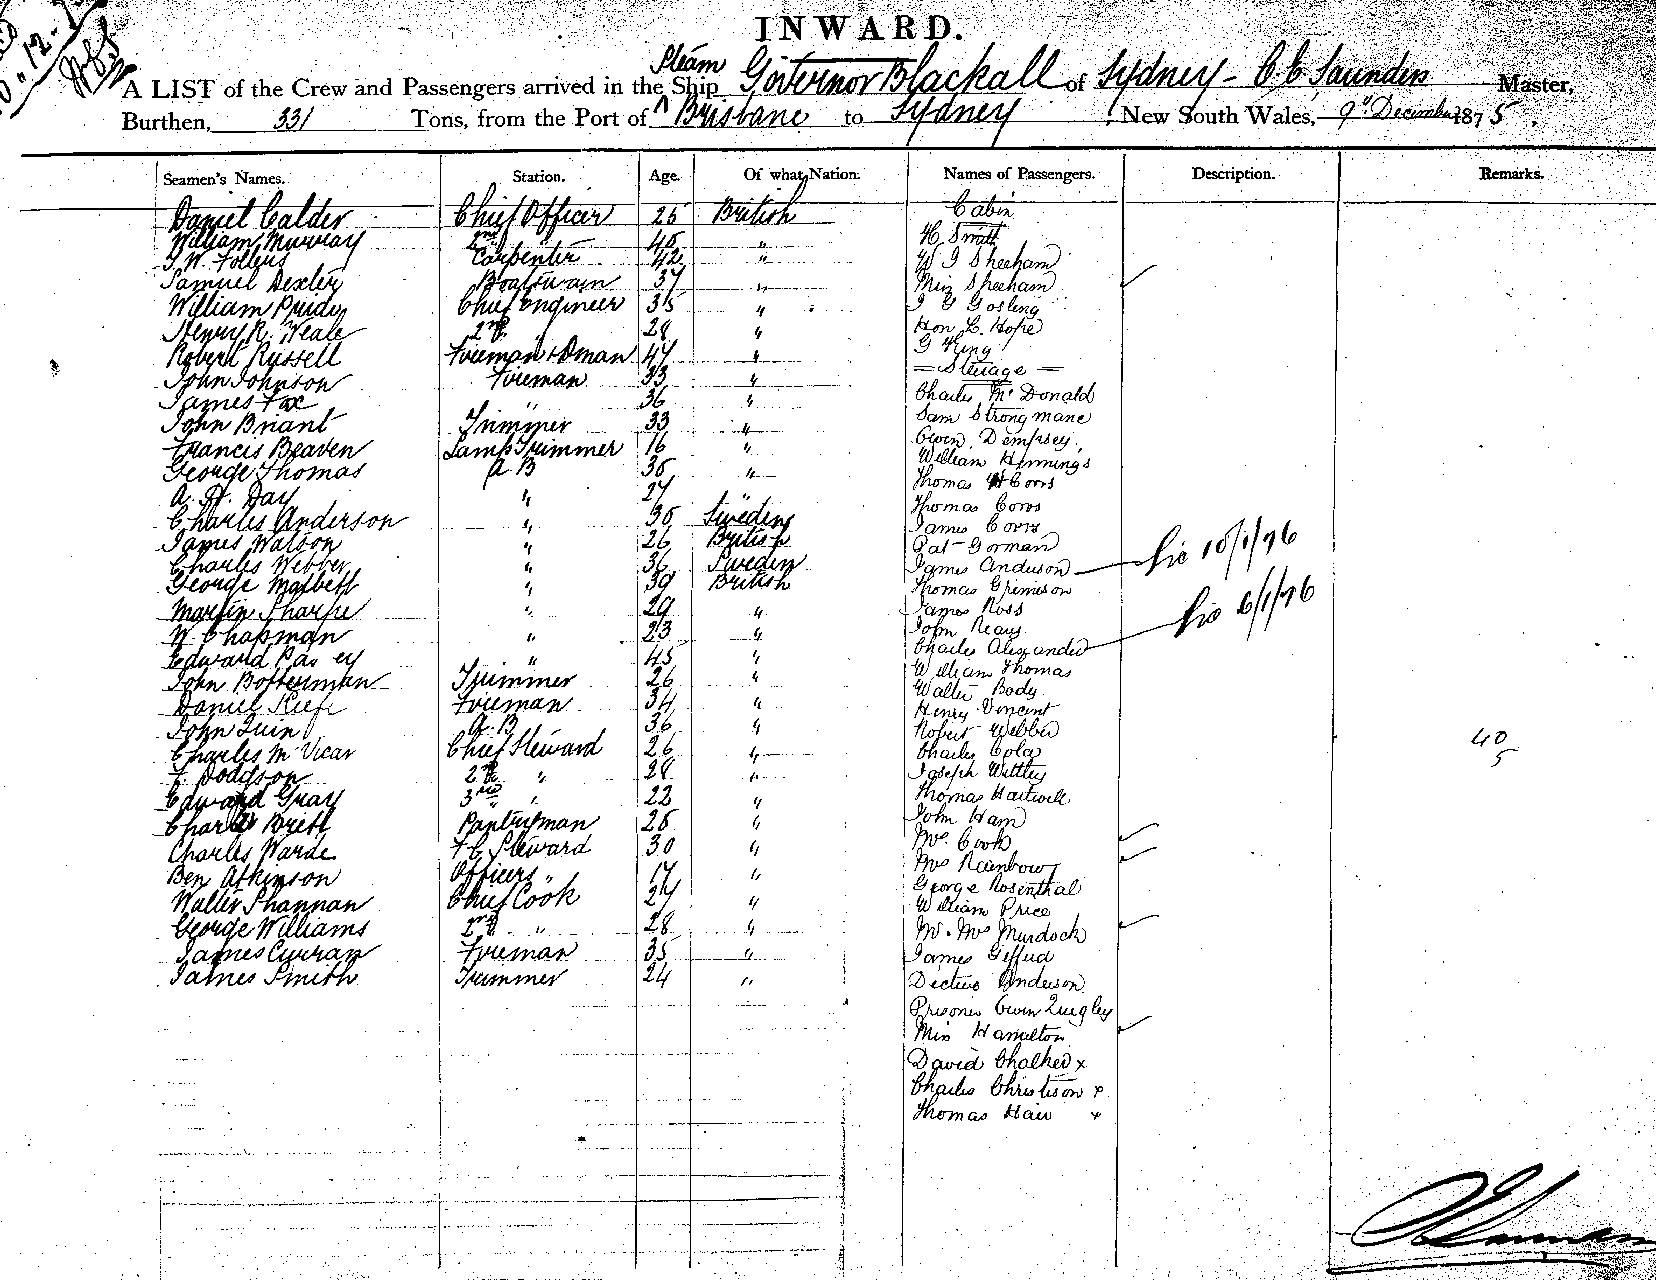 INWARD.
A LIST of the Crew and Passengers arrived in the Steam Ship Governor Blackall of Sydney - C C Saunders Master,
Burthen, 331 Tons, from the Port of Brisbane to Sydney, New South Wales, 9th December 1875.
Seamen's Names. Station. Age. Of what Nation. Names of Passengers. Description. Remarks.
Daniel Calder Chief Officer 25 British Cabin
William Murray 2nd 45 " H Smith
J. W. Follens Carpenter 42 " W J Sheeham
Samuel Dexter Boatswain 37 " Miss Sheeham
William Pride Chief Engineer 35 " J G Gosling
Henry R. Weale 2nd 28 " Hon L. Hope
Robert Russell Fireman & Dman 47 " G King
John Johnson Fireman 33 " = Steerage =
James Fox " 36 " Charles McDonald
John Briant Trimmer 33 " Sam Strongmane
Francis Beaven Lamp Trimmer 16 " Owen Dempsey
George Thomas A B 35 " William Hennings
A. H. Day " 27 " Thomas Corrs
Charles Anderson " 30 Sweden Thomas Corrs
James Watson " 26 British James Corrs
Charles Webber " 36 Sweden Pat Gorman
George Malbett " 39 British James Anderson 10/1/76
Martin Sharpe " 29 " Thomas Grimison
W. Chapman " 23 " James Ross
Edward " 45 " John Neary
John Botterman Trimmer 26 " Charles Alexander 6/1/76
Daniel Keefe Fireman 34 " William Thomas
John Quin A. B 36 " Walter Body
Charles McVicar Chief Steward 26 " Henry Vincent
F. Dodgson 2nd " 28 " Robert Webber
Edward Gray 3rd " 22 " Charles Cola
Charles Brett Pantryman 25 " Joseph Wittley
Charles Warde F C Steward 30 " Thomas Hartwell
Ben Atkinson Officers " 17 " John Ham
Walter Shannan Chief Cook 27 " Mrs. Cook
George Williams 2nd " 28 " Mrs Rainbow
James Curran Fireman 35 " George Rosenthal
James Smith Trimmer 24 " William Price
Mr. Mrs Murdock
James Gifford
Dective Anderson
Prisoner Owen Quigley
Miss Hamilton
David Chalked x
Charles Christison x
Thomas Hair x
40
5